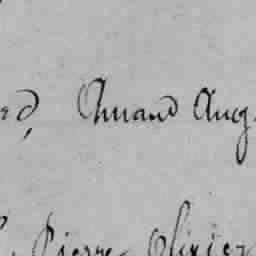 Amand Aug
Pierre Olivier